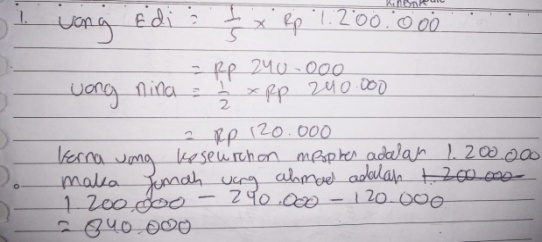 1. uang Edi = 1/5 x Rp 1.200.000
= Rp 240.000
uang nina = 1/2 x Rp 240.000
= Rp 120.000
karna uang keseluruhan mereka adalah 1.200.000
maka jumlah uang ahmad adalah 1.200.000
1 200.000 - 240.000 - 120.000
= 840.000